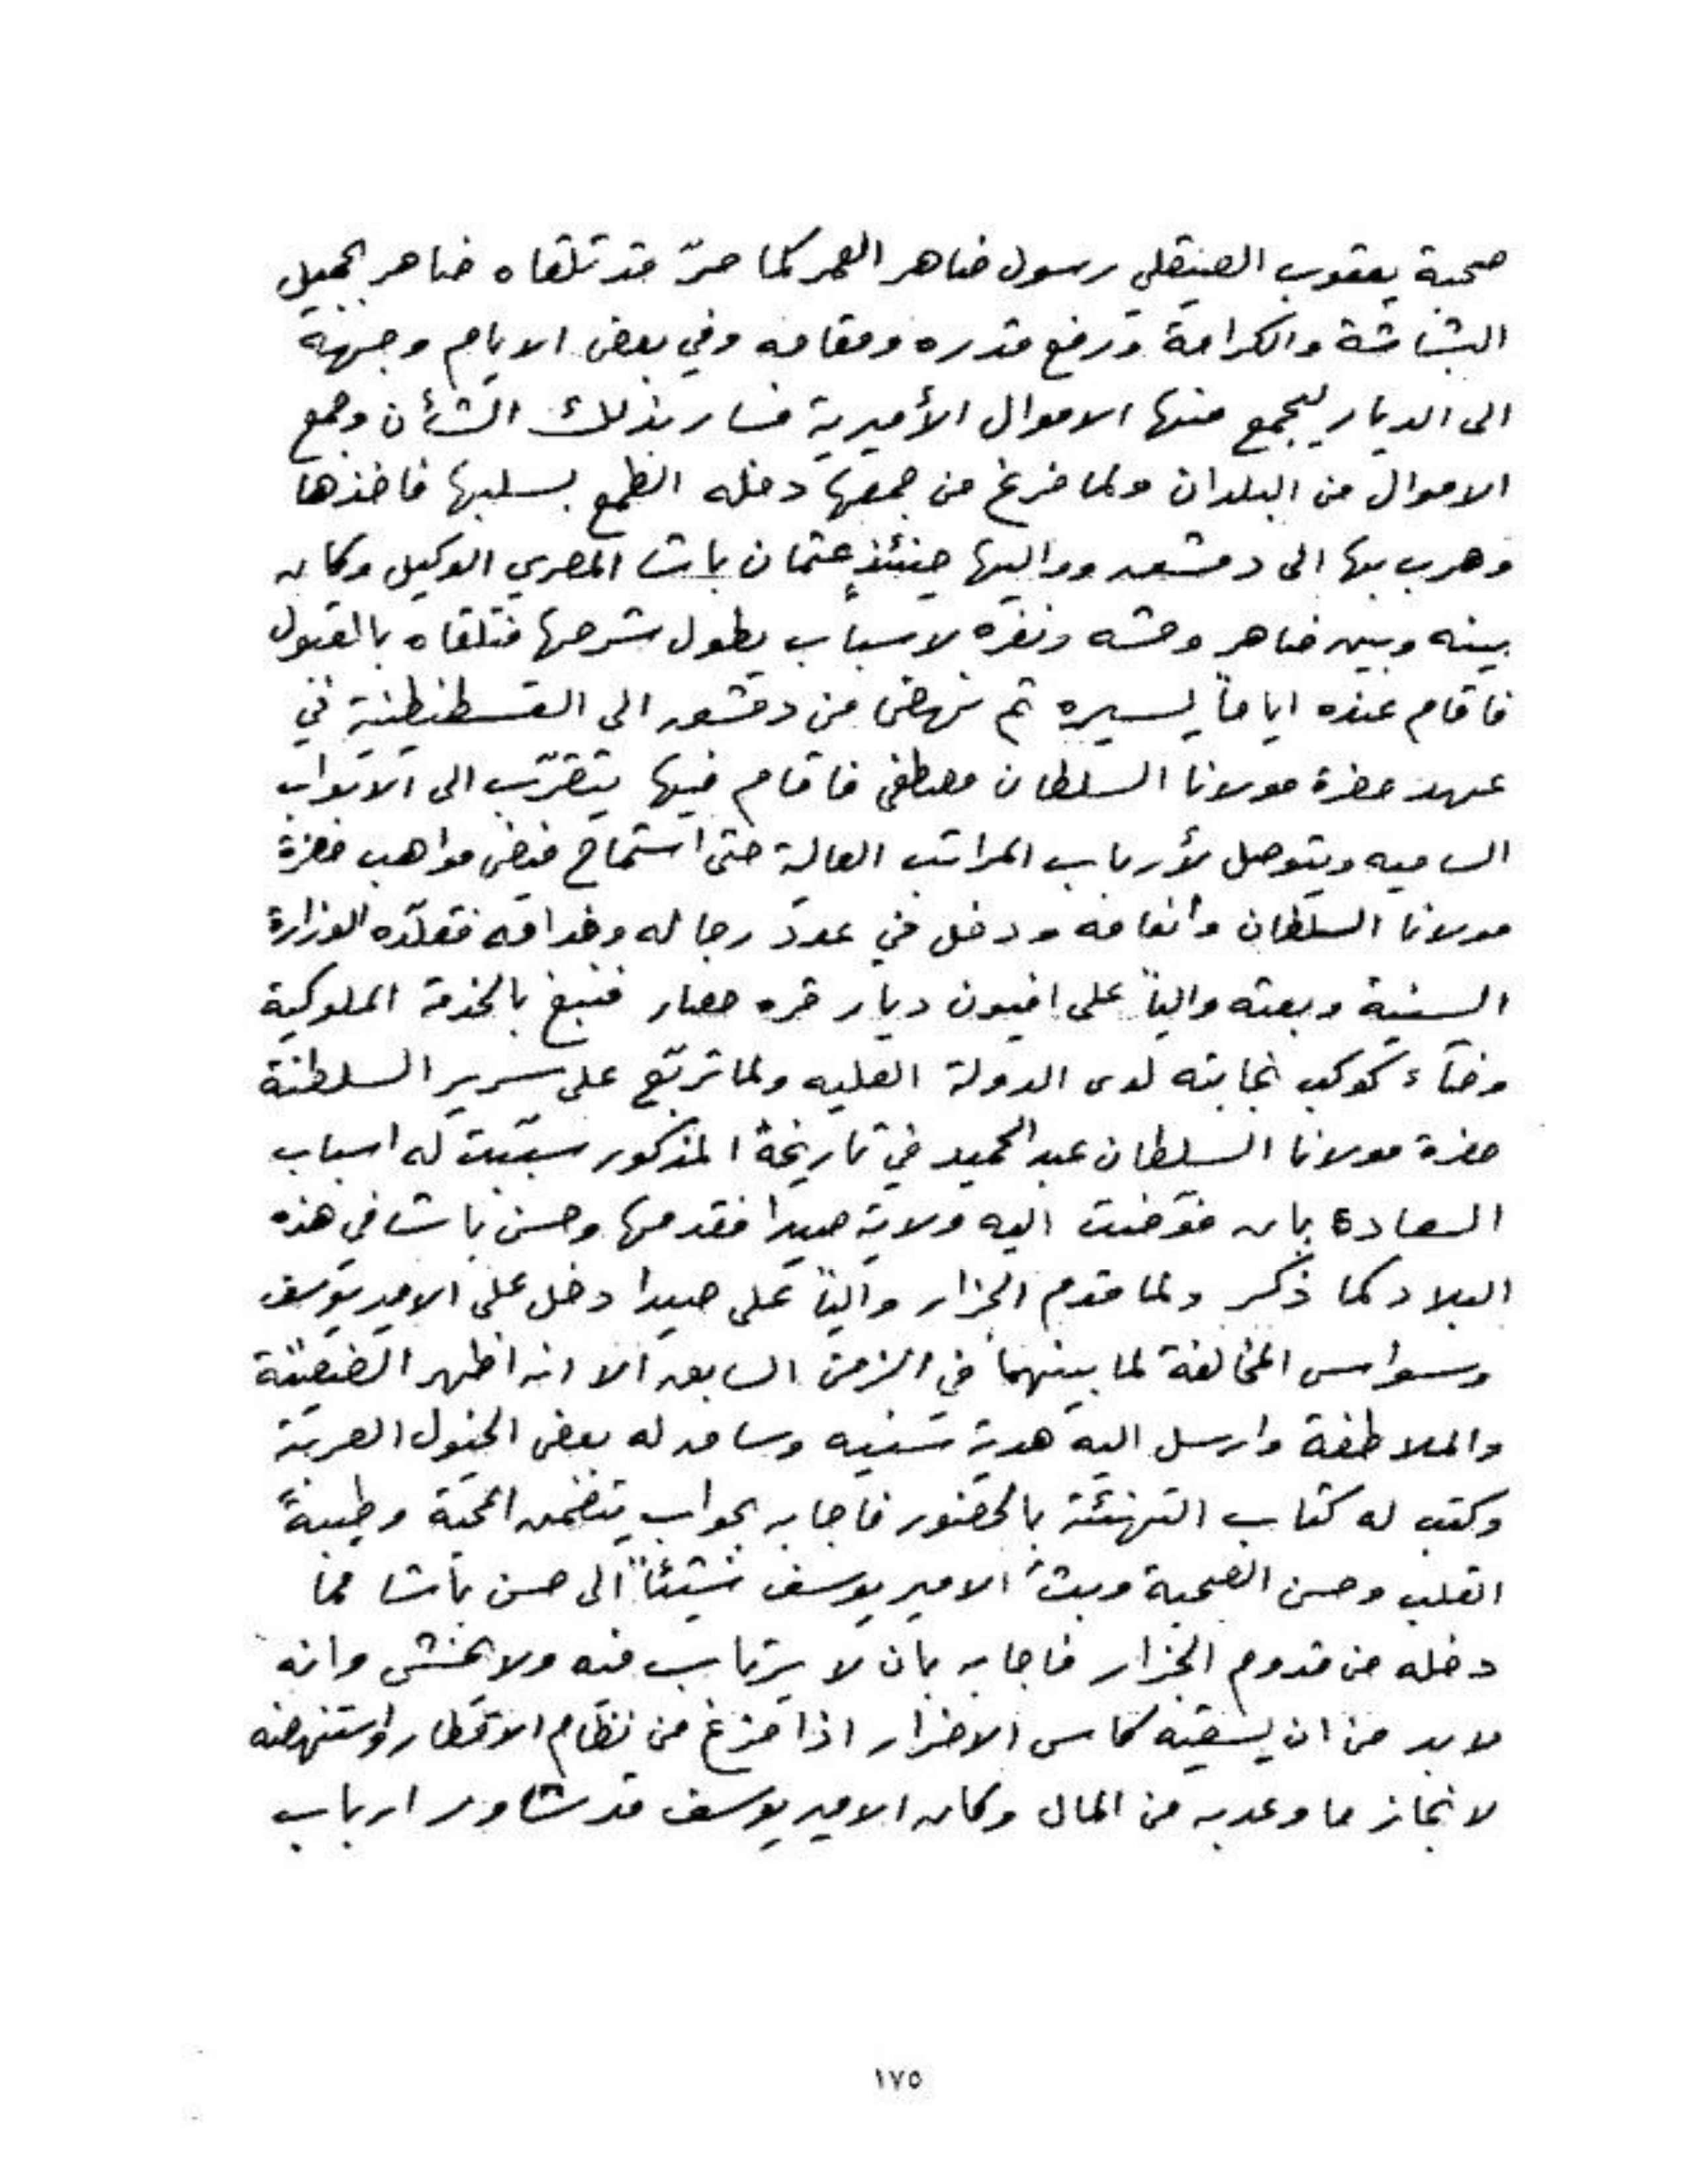 صحبة يعقوب الصيقلي رسول ضاهر العمر كما مرّ قد تلقاه ضاهر بجميل
البشاشة والكرامة ورفع قدره ومقامه وفي بعض الايام وجهة
الى الديار ليجمع منها الاموال الأميرية فسار بذلك الشأن وجمع
الاموال من البلدان ولما فرغ من جمعها دخله الطمع بسلبها فاخذها
وهرب بها الى دمشق وواليها حينئذٍ عثمان باشا المصري الوكيل وكان
بينه وبين ضاهر وحشه ونفره لاسباب يطول شرحها فتلقاه بالقبول
فاقام عنده اياماً يسيره ثم نهض من دمشق الى القسطنطينية في
عهد حضرة مولانا السلطان مصطفى فاقام فيها يتقرّب الى الابواب
الساميه ويتوصل لأرباب المراتب العالية حتى استماح فيض مواهب حضرة
مولانا السلطان وانعامه ودخل في عدد رجاله وخدامه فقلّده الوزارة
السنية وبعثه والياً على افيون ديار قره حصار فنبغ بالخدمة الملوكية
وضآء كوكب نجابته لدى الدولة العليه ولما تربّع على سرير السلطنة
حضرة مولانا السلطان عبد الحميد في تاريخهٔ المذكور سبّبت له اسباب
السعادة بان فوّضت اليه ولاية صيدا فقدمها وحسن باشا في هذه
البلاد كما ذُكر ولما قدم الجزار والياً على صيدا دخل على الامير يوسف
وسواس المخالفة لما بينهما في الزمن السابق الا انه اظهر
والملاطفة وارسل اليه هدية سنيه وساق له بعض الخيول العربية
وكتب له كتاب التهنئة بالحضور فاجابه بجواب يتضمن المحبّة وطيبة
القلب وحسن الصحبة وبثّ الامير يوسف شيئاً الى حسن باشا مما
دخله من قدوم الجزار فاجابه بان لا يرتاب منه ولا يخشى وانه
لا بد من ان يسقيه كاس الاضرار اذا فرغ من نظام الاقطار واستنهضه
لانجاز ما وعد به من المال وكان الامير يوسف قد شاور ارباب
١٧٥